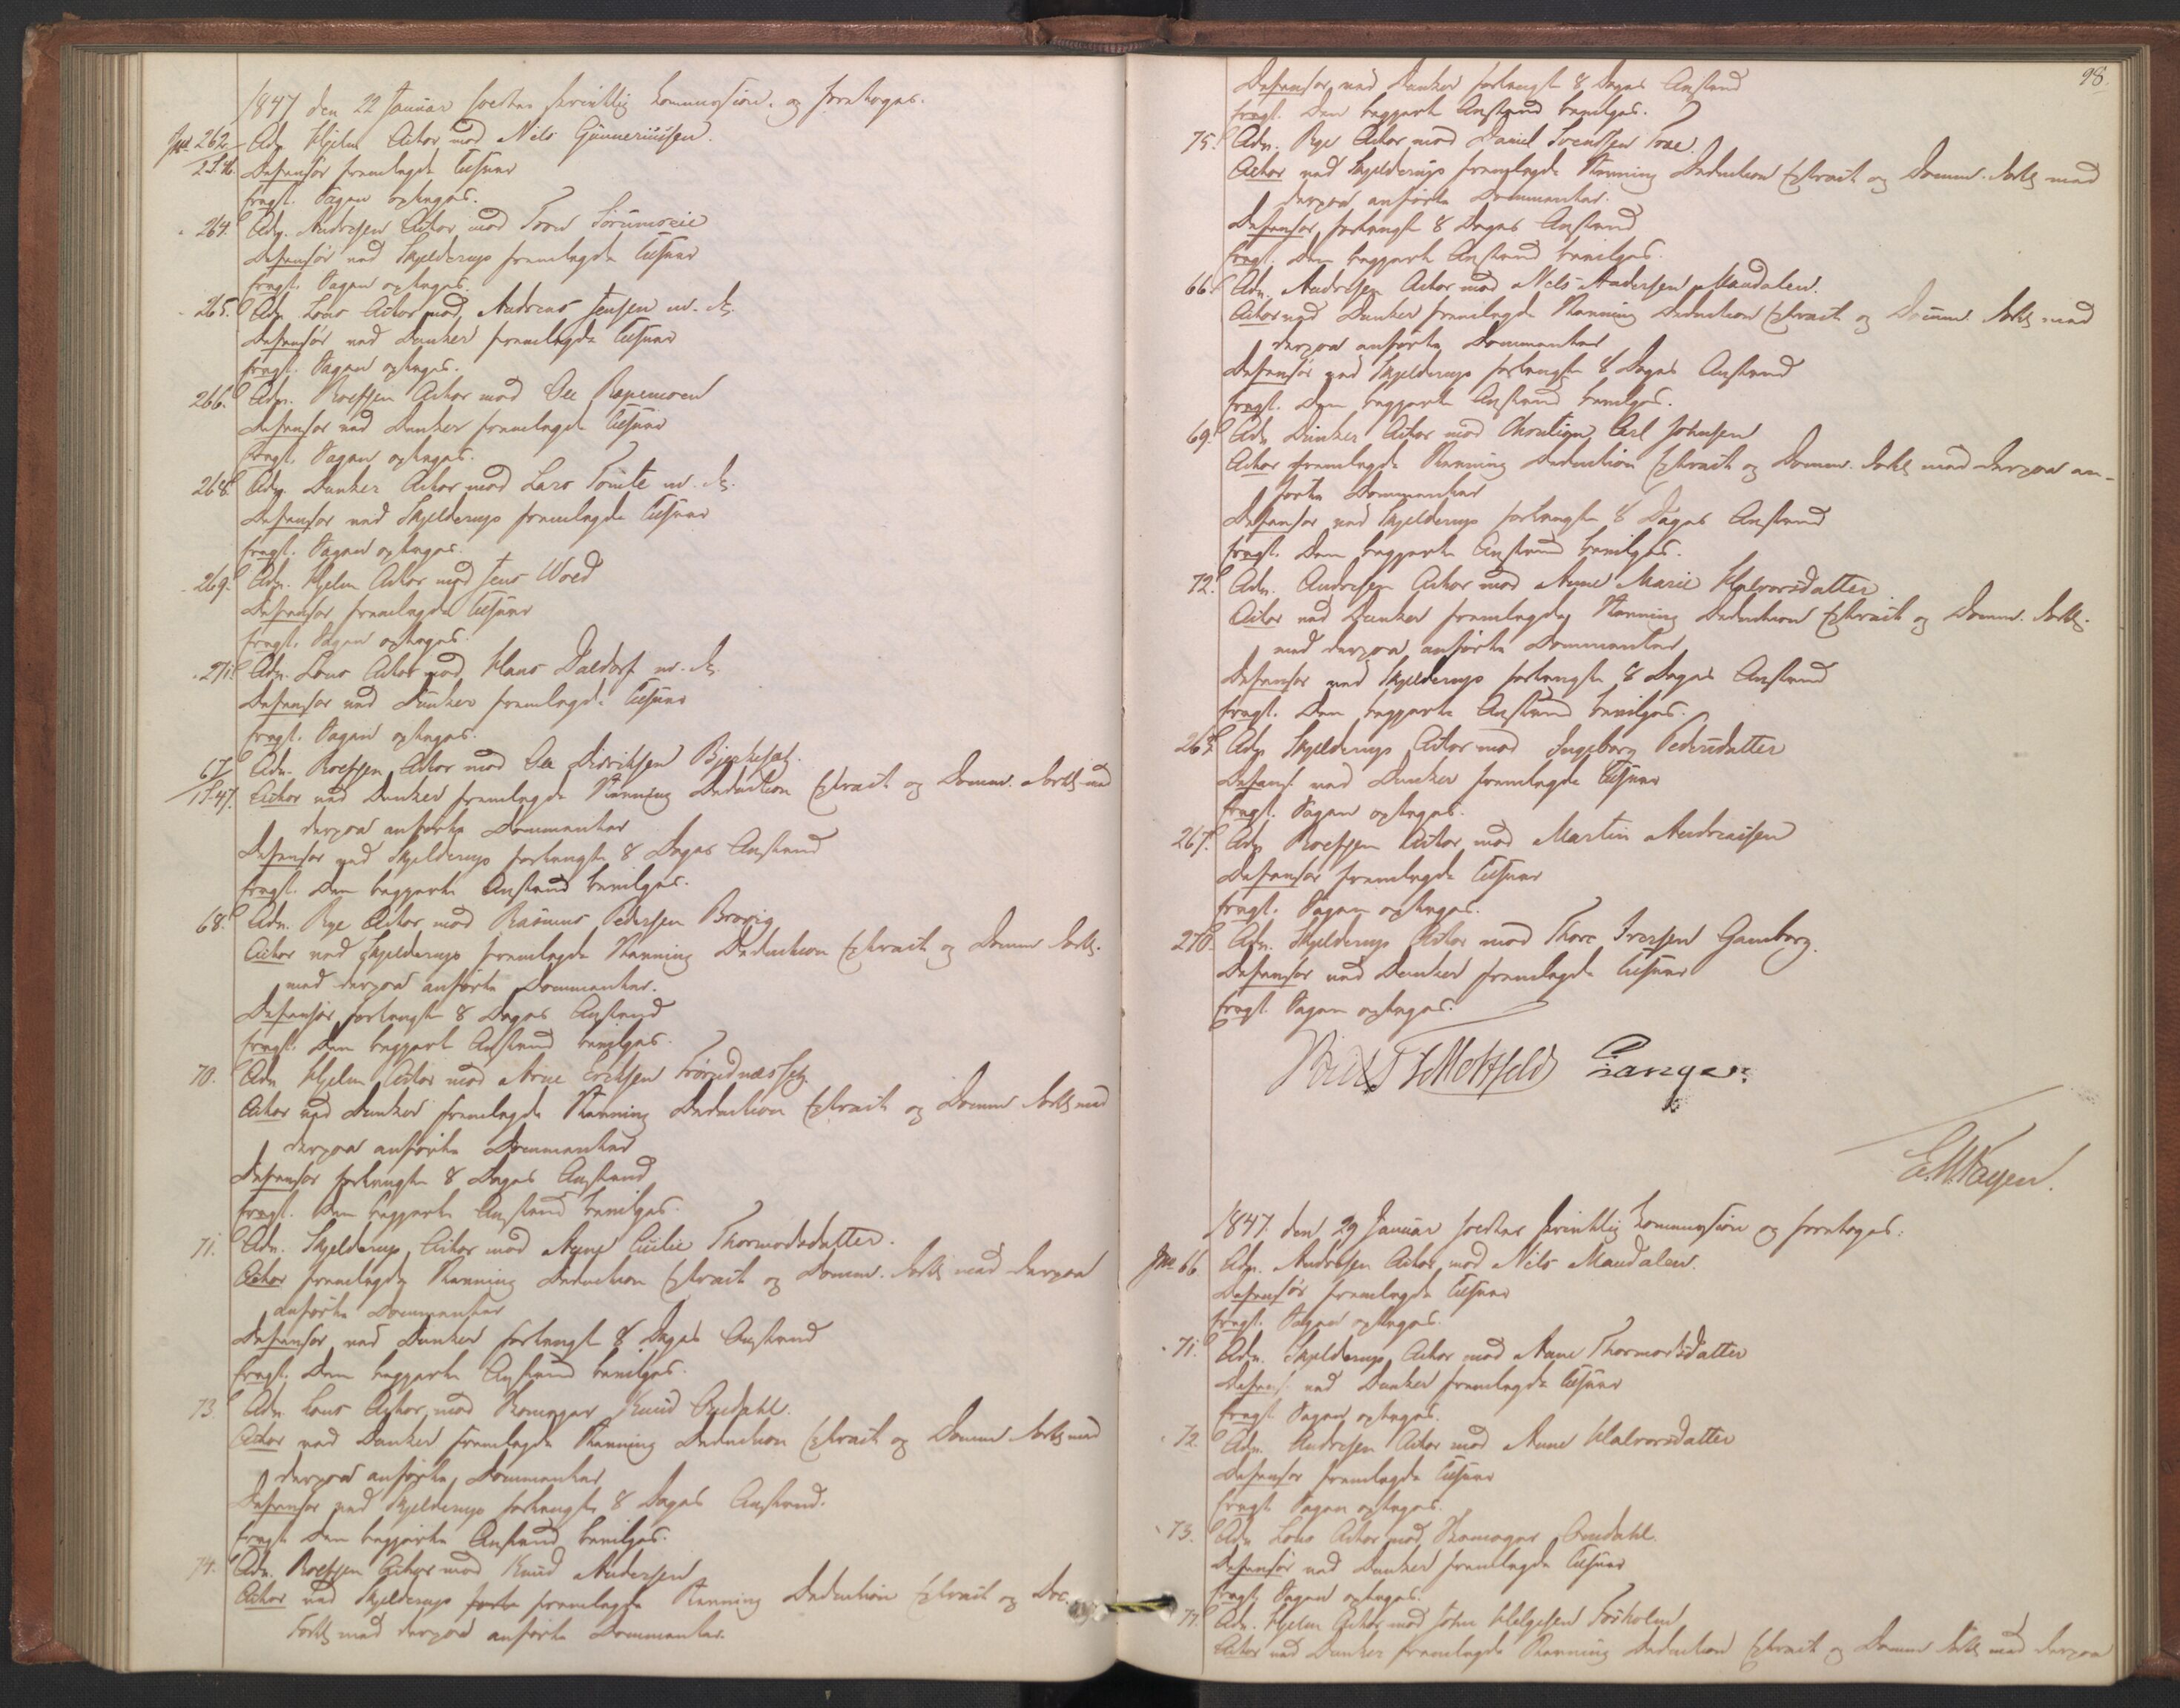 1847 den 22 Januar holdtes skriftlig Commission og foretoges.
No 262 Adv. Hjelm Actor mod Nels Gunneriussen.
2 S. 46. Defensor fremlagde Tilsvar
Eragt. Sagen optages.
264. Adv. Andresen Actor mod Tron Sørumseie
Defensor ved Skjelderup fremlagde Tilsvar
Eragt. Sagen optages.
265. Adv. Lous Actor mod Andreas Jensen m. fl.
Defensor ved Dunker fremlagde Tilsvar
Eragt. Sagen optages.
266. Adv. Rolfsen Actor mod Ole Rapemoen
Defensor ved Dunker fremlagde Tilsvar
Eragt. Sagen optages.
268. Adv. Dunker Actor mod Lars Tomte m. fl.
Defensor ved Skjelderup fremlagde Tilsvar
Eragt. Sagen optages.
269. Adv. Hjelm Actor mod Jens Wold
Defensor fremlagde Tilsvar
Eragt. Sagen optages.
271. Adv. Lous Actor mod Klaus Daldorf m. fl.
Defensor ved Dunker fremlagde Tilsvar
Eragt. Sagen optages.
67 Adv. Rolfsen Actor mod Ole Diriksen
1 S. 47. Actor ved Dunker fremlagde Stævning Deduction Extract og Docum. Fortg. med
derpaa anførte Documenter
Defensor ved Skjelderup forlangte 8 Dages Anstand
Eragt. Den begjærte Anstand bevilges.
68. Adv. Rye Actor mod Rasmus Pedersen Brovig
Actor ved Skjelderup fremlagde Stævning Deduction Extract og Docum Fortg.
med derpaa anførte Documenter.
Defensor forlangte 8 Dages Anstand
Eragt. Den begjærte Anstand bevilges.
70. Adv Hjelm Actor mod Arne Eriksen
Actor ved Dunker fremlagde Stævning Deduction Extract og Docum Fortg med
derpaa anførte Documenter
Defensor forlangte 8 Dages Anstand
Eragt. Den begjærte Anstand bevilges.
71. Adv. Skjelderup Actor mod Anne Cicilie Thormodsdatter.
Actor fremlagde Stævning Deduction Extract og Docum. Fortg med derpaa
anførte Documenter
Defensor ved Dunker forlangte 8 Dages Anstand
Eragt. Den begjærte Anstand bevilges.
73. Adv. Lous Actor mod Skomager Knud Omdahl.
Actor ved Dunker fremlagde Stævning Deduction Extract og Docum Fortg med
derpaa anførte Documenter
Defensor ved Skjelderup forlangte 8 Dages Anstand.
Eragt. Den begjærte Anstand bevilges.
74. Adv. Rolfsen Actor mod Knud Andersen
Actor ved Skjelderup fremlagde Stævning Deduction Extract og Doc.
Fortg med derpaa anførte Documenter.
98.
Defensor ved Dunker forlangte 8 Dages Anstand
Eragt. Den begjærte Anstand bevilges.
75. Adv. Rye Actor mod Daniel Svendsen Toue.
Actor ved Skjelderup fremlagde Stævning Deduction Extract og Docum. Fortg med
derpaa anførte Documenter.
Defensor forlangte 8 Dages Anstand
Eragt. Den begjærte Anstand bevilges.
66. Adv. Andresen Actor mod Nels Andersen Maudalen.
Actor ved Dunker fremlagde Stævning Deduction Extract og Docum Fortg med
derpaa anførte Documenter
Defensor ved Skjelderup forlangte 8 Dages Anstand
Eragt. Den begjærte Anstand bevilges.
69. Adv Dunker Actor mod Christian Carl Johnsen
Actor fremlagde Stævning Deduction Extract og Docum. Fortg med derpaa an-
førte Documenter
Defensor ved Skjelderup forlangte 8 Dages Anstand
Eragt. Den begjærte Anstand bevilges.
72. Adv. Andresen Actor mod Anne Marie Halvorsdatter
Actor ved Dunker fremlagde Stævning Deduction Extract og Docum. Fortg.
med derpaa anførte Documenter
Defensor ved Skjelderup forlangte 8 Dages Anstand
Eragt. Den begjærte Anstand bevilges.
263. Adv Skjelderup Actor mod Ingeborg Pedersdatter
Defens. ved Dunker fremlagde Tilsvar
Eragt. Sagen optages.
267. Adv Rolfsen Actor mod Martin Andreassen
Defensor fremlagde Tilsvar
Eragt. Sagen optages.
270. Adv. Skjelderup Actor mod Thore Iversen Gamborg.
Defensor ved Dunker fremlagde Tilsvar
Eragt. Sagen optages.
Motzfeldt Lange.
1847. den 29 Januar holdtes skriftlig Commission og foretoges.
No 66. Adv. Andresen Actor mod Nels Maudalen.
Defensor fremlagde Tilsvar
Eragt. Sagen optages.
71. Adv. Skjelderup Actor mod Anne Thormodsdatter
Defens. ved Dunker fremlagde Tilsvar
Eragt. Sagen optages.
72. Adv. Andresen Actor mod Anne Halvorsdatter
Defensor fremlagde Tilsvar
Eragt. Sagen optages.
73. Adv Lous Actor mod Skomager Omdahl.
Defensor ved Dunker fremlagde Tilsvar
Eragt. Sagen optages.
77. Adv. Hjelm Actor mod John Helgesen Foskolm
Actor ved Dunker fremlagde Stævning Deduction Extract og Docum Fortg med derpaa